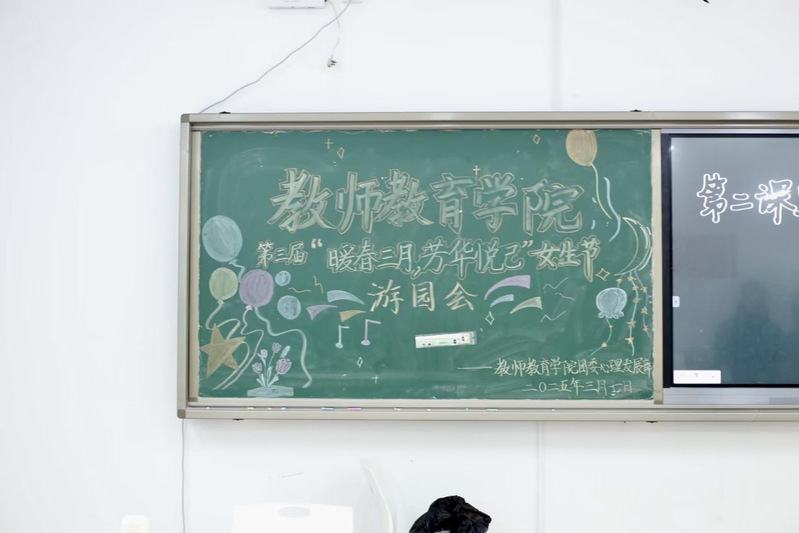 教师教育学院
第三届“暖春三月,芳华悦己”女生节
游园会
——教师教育学院团委心理发展部
二〇二五年三月七日
第二课